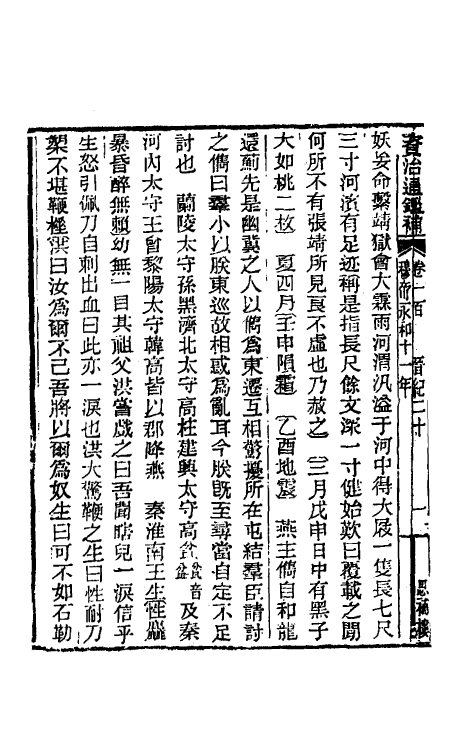 資治通鑑補 卷一百 晉紀二十
穆帝永和十一年
一
思補樓
妖妄命繫靖獄會大霖雨河渭汎溢于河中得大屐一隻長七尺
三寸河濱有足迹稱是指長尺餘文深一寸健始歎曰覆載之閒
何所不有張靖所見良不虛也乃赦之 三月戊申日中有黑子
大如桃二枚 夏四月壬申隕霜 乙酉地震 燕主儁自和龍
還薊先是幽冀之人以儁爲東遷互相驚擾所在屯結羣臣請討
之儁曰羣小以朕東巡故相惑爲亂耳今朕既至尋當自定不足
討也 蘭陵太守孫黑濟北太守高柱建興太守高瓫 及秦
河內太守王會黎陽太守韓高皆以郡降燕 秦淮南王生性麤
暴昏醉無賴幼無一目其祖父洪嘗戲之曰吾聞瞎兒一淚信乎
生怒引佩刀自刺出血曰此亦一淚也洪大驚鞭之生曰性耐刀
槊不堪鞭棰洪曰汝爲爾不已吾將以爾爲奴生曰可不如石勒